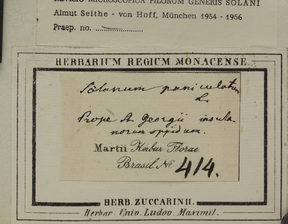 REVISIO MICROSCOPICA PILORUM GENERIS SOLANI
Almut Seithe - von Hoff, München 1954 - 1956
Praep. no.
HERBARIUM REGIUM MONACENSE.
Solanum paniculatum
L.
Prope S. Georgii insula
norum oppidum.
Martii Herbar. Florae
Brasil. No. 414.
HERB. ZUCCARINII.
Herbar. Univ. Ludov. Maximil.